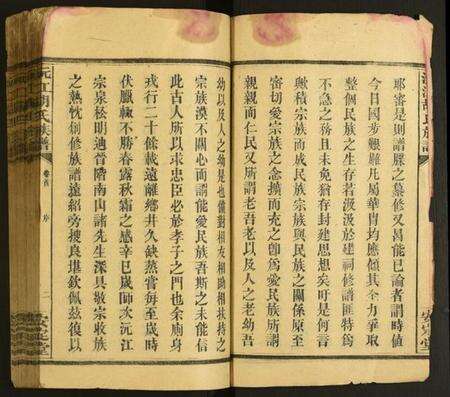 耶審是則譜牒之纂修又曷能已論者謂時值
今日國步艱難凡屬華胄均應傾其全力爭取
整個民族之生存若汲汲於建祠修譜匪特爲
不急之務且未免猶存封建思想矣吁是何言
歟積宗族而成民族宗族與民族之關係原至
密切愛宗族之念擴而充之卽爲愛民族所謂
親親而仁民又所謂老吾老以及人之老幼吾
幼以及人之幼是也儻對相友相助相扶持之
宗族漠不關心而謂能愛民族吾斯之未能信
此古人所以求忠臣必於孝子之門也余廁身
戎行二十餘載遠離鄉井久缺烝嘗每至歲時
伏臘輒不勝春露秋霜之感辛巳歲師次沅江
宗泉松明迪晉階南山諸先生深具敬宗收族
之熱忱創修族譜遠紹旁搜良堪欽佩茲復以
沅江胡氏族譜
卷首
序
二
安定堂